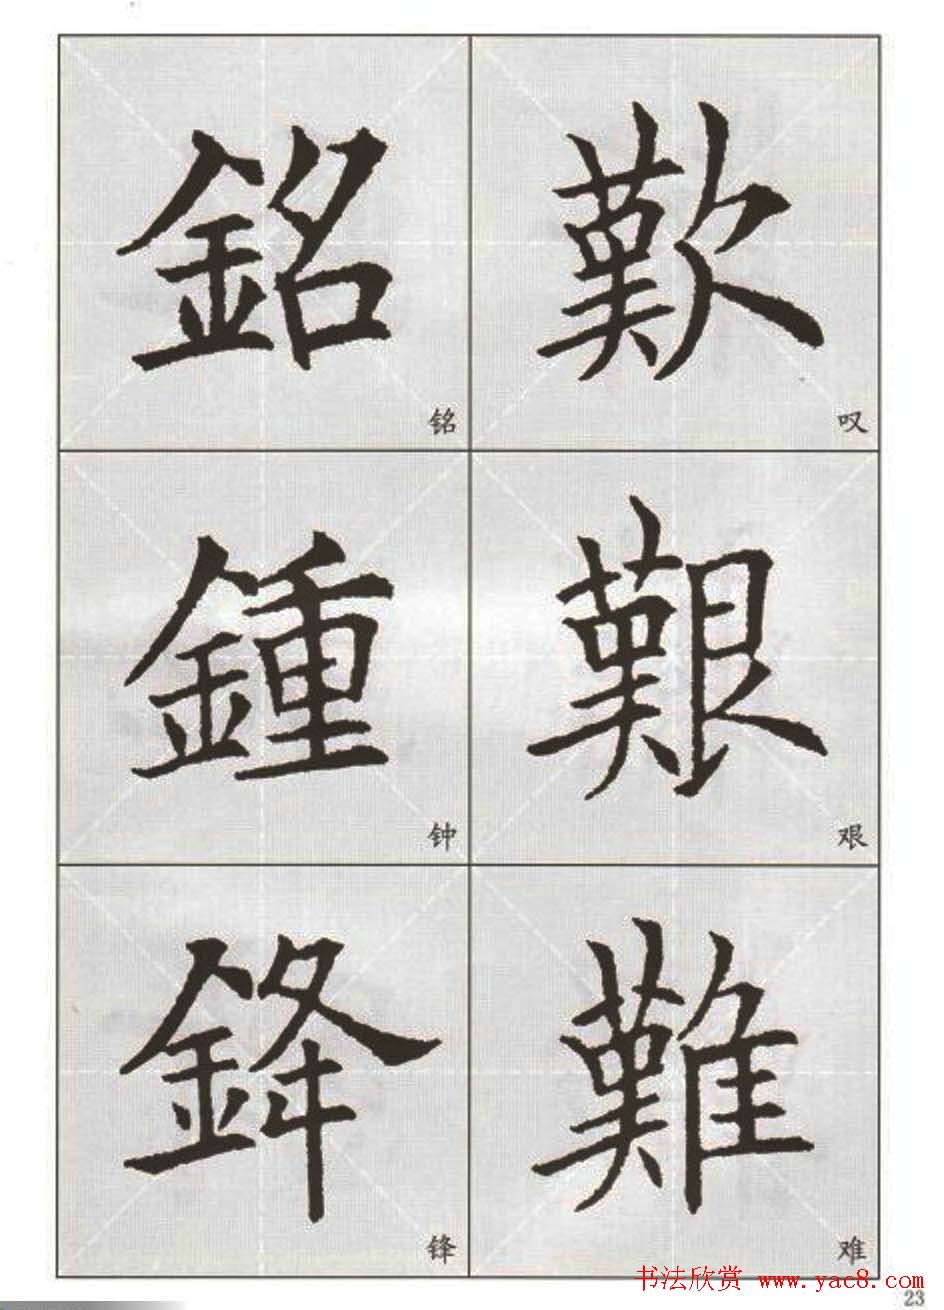 銘 歎
铭 叹
鍾 艱
钟 艰
鋒 難
锋 难
书法欣赏 www.yac8.com
23